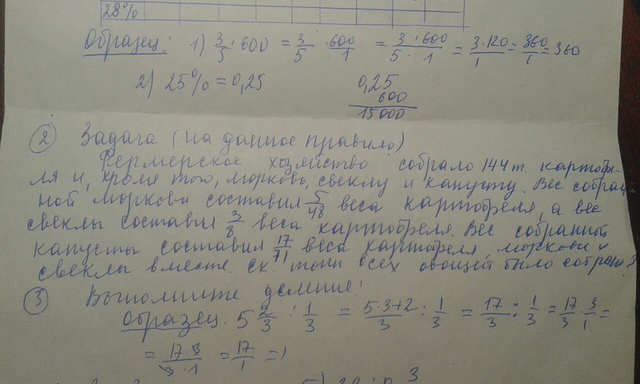 28%
Образец: 1) 3/5 · 600 = 3/5 · 600/1 = 3 · 600/5 · 1 = 3 · 120/1 = 360/1 = 360
2) 25% = 0,25
0,25
600
15000
2 Задача (на данное правило)
Фермерское хозяйство собрало 144 т. картофе-
ля и, кроме того, морковь, свеклу и капусту. Вес собран-
ной моркови составил 5/48 веса картофеля, а вес
свеклы составил 3/8 веса картофеля. Вес собранной
капусты составил 17/71 веса картофеля, моркови и
свеклы вместе. Ск. тонн всех овощей было собрано?
3 Выполните деление:
Образец. 5 2/3 : 1/3 = 5·3+2/3 : 1/3 = 17/3 : 1/3 = 17/3 · 3/1 =
= 17·3/3·1 = 17/1 = 1